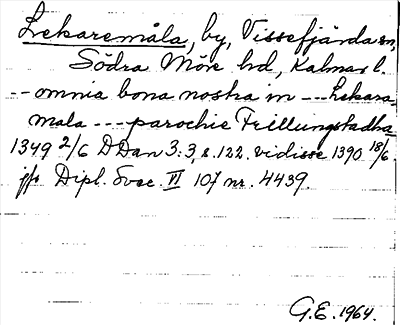 Lekaremåla, by, Vissefjärda sn,
Södra Möre hd, Kalmar l.
-- omnia bona nostra in --- Lekara-
mala --- parochie Trillungstadha
1349 2/6 DDan 3:3, s. 122. vidisse 1390 18/6.
jfr Dipl. Svec. VI 107 nr. 4439.
G.E. 1964.